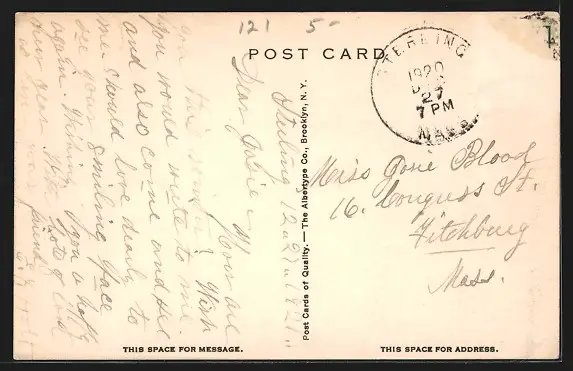 121 5-
POST CARD
STERLING
1920
DEC
27
7 PM
MASS.
Sterling, 12-27-1920
Dear
How are
you this winter? Wish
you would write to me
and also come and see
me. Would love dearly to
see your smiling face
again. Wishing you a happy
new year with lots of love
Post Cards of Quality. — The Albertype Co., Brooklyn, N. Y.
Miss Blood
16. Congress St.
Fitchburg
Mass.
THIS SPACE FOR MESSAGE.
THIS SPACE FOR ADDRESS.